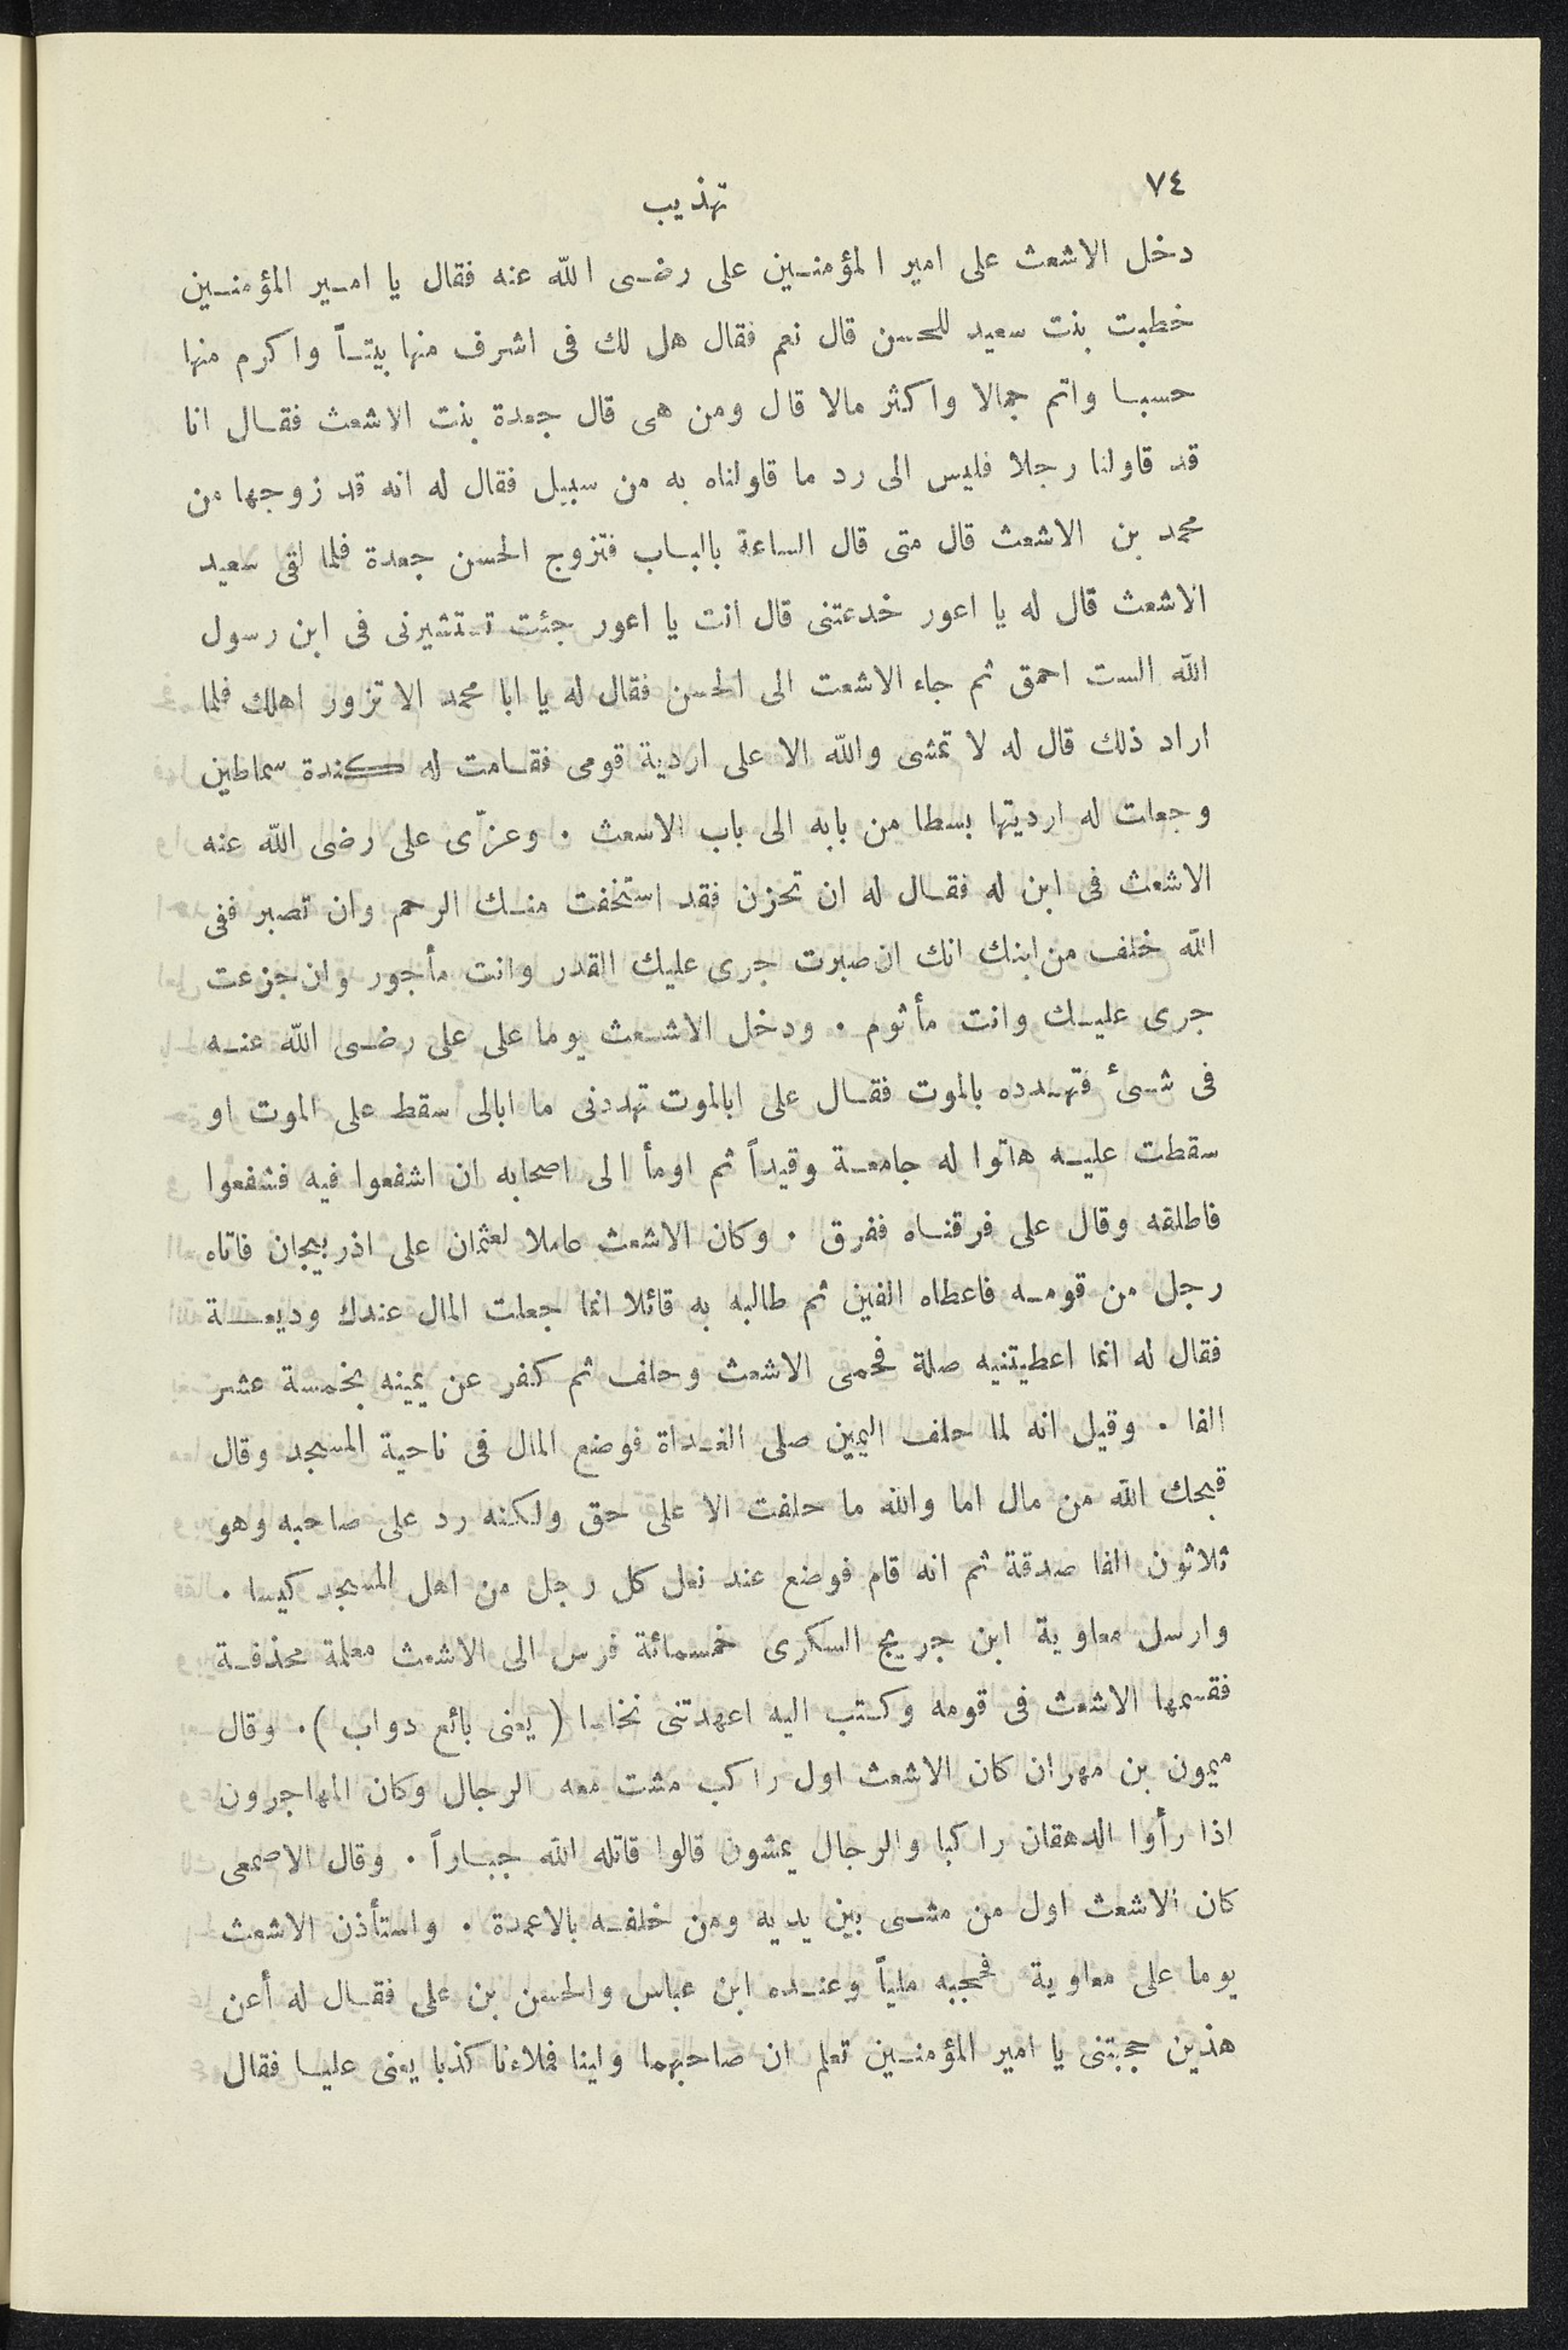 ٧٤
تهذيب
دخل الاشعث على امير المؤمنين على رضى الله عنه فقال يا امير المؤمنين
خطبت بنت سعيد للحسن قال نعم فقال هل لك فى اشرف منها بيتاً واكرم منها
حسبا واتم جمالا واكثر مالا قال ومن هى قال جعدة بنت الاشعث فقال انا
قد قاولنا رجلا فليس الى رد ما قاولناه به من سبيل فقال له انه قد زوجها من
محمد بن الاشعث قال متى قال الساعة بالباب فتزوج الحسن جعدة فلما لقى سعيد
الاشعث قال له يا اعور خدعتنى قال انت يا اعور جئت تستشيرنى فى ابن رسول
الله الست احمق ثم جاء الاشعت الى الحسن فقال له يا ابا محمد الا تزور اهلك فلما
اراد ذلك قال له لا تمشى والله الا على اردية قومى فقامت له كندة سماطين
وجعلت له ارديتها بسطا من بابه الى باب الاسعث . وعزّى على رضى الله عنه
الاشعث فى ابن له فقال له ان تحزن فقد استخفت منك الرحم وان تصبر ففى
الله خلف من ابنك انك ان صبرت جرى عليك القدر وانت مأجور وان جزعت
جرى عليك وانت مأثوم . ودخل الاشعث يوما على على رضى الله عنه
فى شىء فتهدده بالموت فقال على ابالموت تهددنى ما ابالى سقط على الموت او
سقطت عليه هاتوا له جامعة وقيداً ثم اومأ الى اصحابه ان اشفعوا فيه فشفعوا
فاطلقه وقال على فرقناه ففرق . وكان الاشعث عاملا لعثمان على اذربيجان فاتاه
رجل من قومه فاعطاه الفين ثم طالبه به قائلا انما جعلت المال عندك وديعة
فقال له انما اعطيتنيه صلة فحمى الاشعث وحلف ثم كفر عن يمينه بخمسة عشر
الفا . وقيل انه لما حلف اليمين صلى الغداة فوضع المال فى ناحية المسجد وقال
قبحك الله من مال اما والله ما حلفت الا على حق ولكنه رد على صاحبه وهو
ثلاثون الفا صدقة ثم انه قام فوضع عند نعل كل رجل من اهل المسجد كيسا .
وارسل معاوية ابن جريج السكرى خمسمائة فرس الى الاشعث معلمة محذفة
فقسمها الاشعث فى قومه وكتب اليه اعهدتنى نخاسا ( يعنى بائع دواب ) . وقال
ميمون بن مهران كان الاشعث اول راكب مشت معه الرجال وكان المهاجرون
اذا رأوا الدهقان راكبا والرجال يمشون قالوا قاتله الله جباراً . وقال الاصمعى
كان الاشعث اول من مشى بين يديه ومن خلفه بالاعمدة . واستأذن الاشعث
يوما على معاوية فحجبه ملياً وعنده ابن عباس والحسن بن على فقال له أعن
هذين حجبتنى يا امير المؤمنين تعلم ان صاحبهما ولينا فملاءنا كذبا يعنى عليا فقال